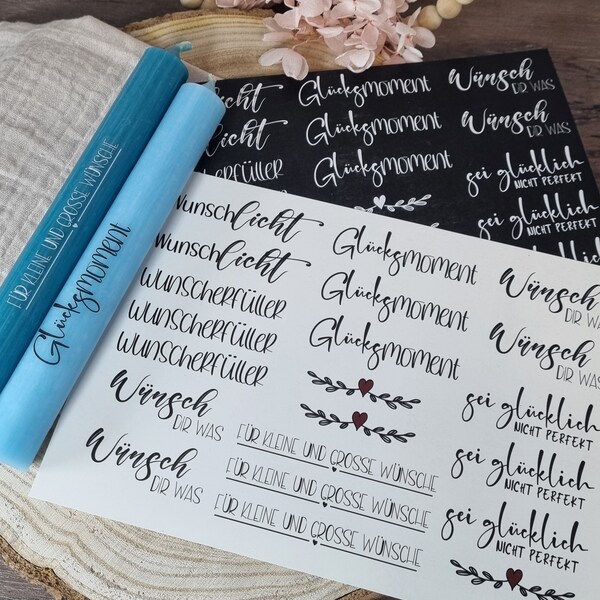 FÜR KLEINE UND GROSSE WÜNSCHE
Glücksmoment
licht
Glücksmoment
Wünsch
DIR WAS
licht
Glücksmoment
Wünsch
DIR WAS
Glücksmoment
sei glücklich
NICHT PERFEKT
sei glücklich
NICHT PERFEKT
sei glücklich
Wunschlicht
Wunschlicht
WUNSCHERFÜLLER
WUNSCHERFÜLLER
WUNSCHERFÜLLER
Wünsch
DIR WAS
Wünsch
DIR WAS
Glücksmoment
Glücksmoment
Glücksmoment
FÜR KLEINE UND GROSSE WÜNSCHE
FÜR KLEINE UND GROSSE WÜNSCHE
FÜR KLEINE UND GROSSE WÜNSCHE
Wünsch
DIR WAS
Wünsch
DIR WAS
sei glücklich
NICHT PERFEKT
sei glücklich
NICHT PERFEKT
sei glücklich
NICHT PERFEKT